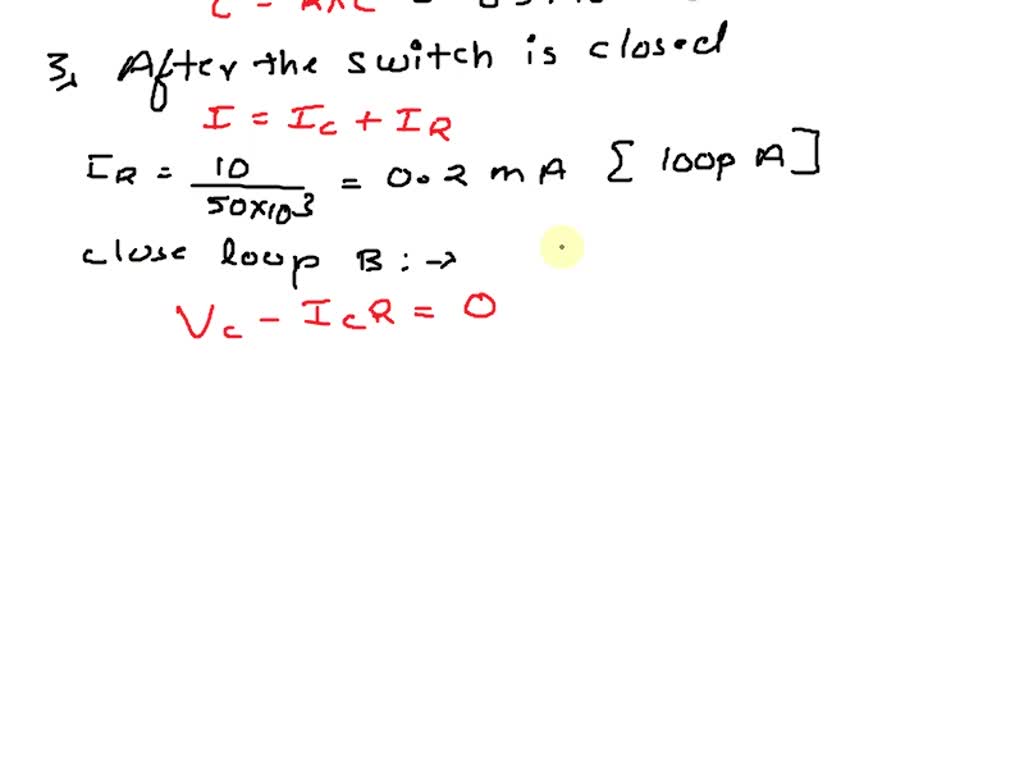 3, After the switch is closed
I = Ic + IR
IR = 10 / 50×10³ = 0.2 mA [loop A]
close loop B : →
Vc - IcR = 0